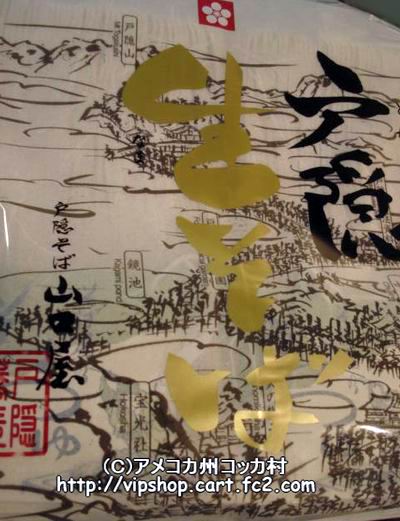 戸隠
生そば
戸隠山
Mt.Togakushi
鏡池
Kagami pond
宝光社
戸隠そば 山口屋
(C)アメコカ州コッカ村
http://vipshop.cart.fc2.com/